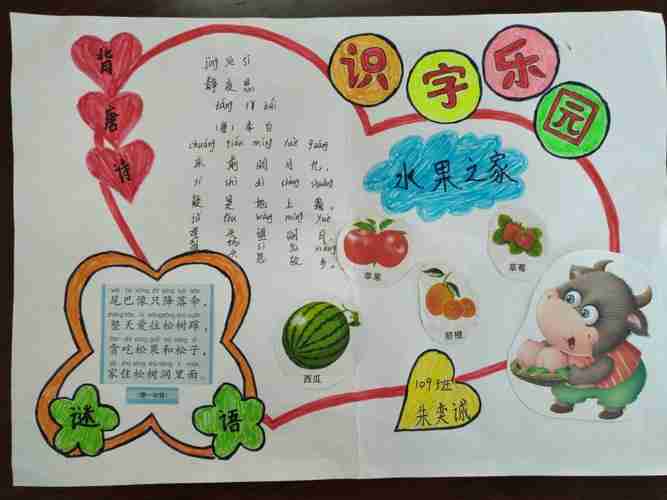 识字乐园
背
唐
诗
jìng yè sī
静夜思
táng lǐ bái
(唐)李白
chuáng qián míng yuè guāng
床前明月光,
yí shì dì shàng shuāng
疑是地上霜。
tóu wàng míng yuè
头望明月,
头思故乡。
水果之家
苹果
草莓
脐橙
西瓜
尾巴像只降落伞,
整天爱往松树蹿,
吃松果和松子,
家住松树洞里面。
谜语
109班
朱奕诚